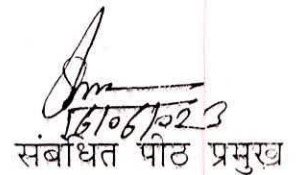 16/06/2023
संबोधित पीठ प्रमुख